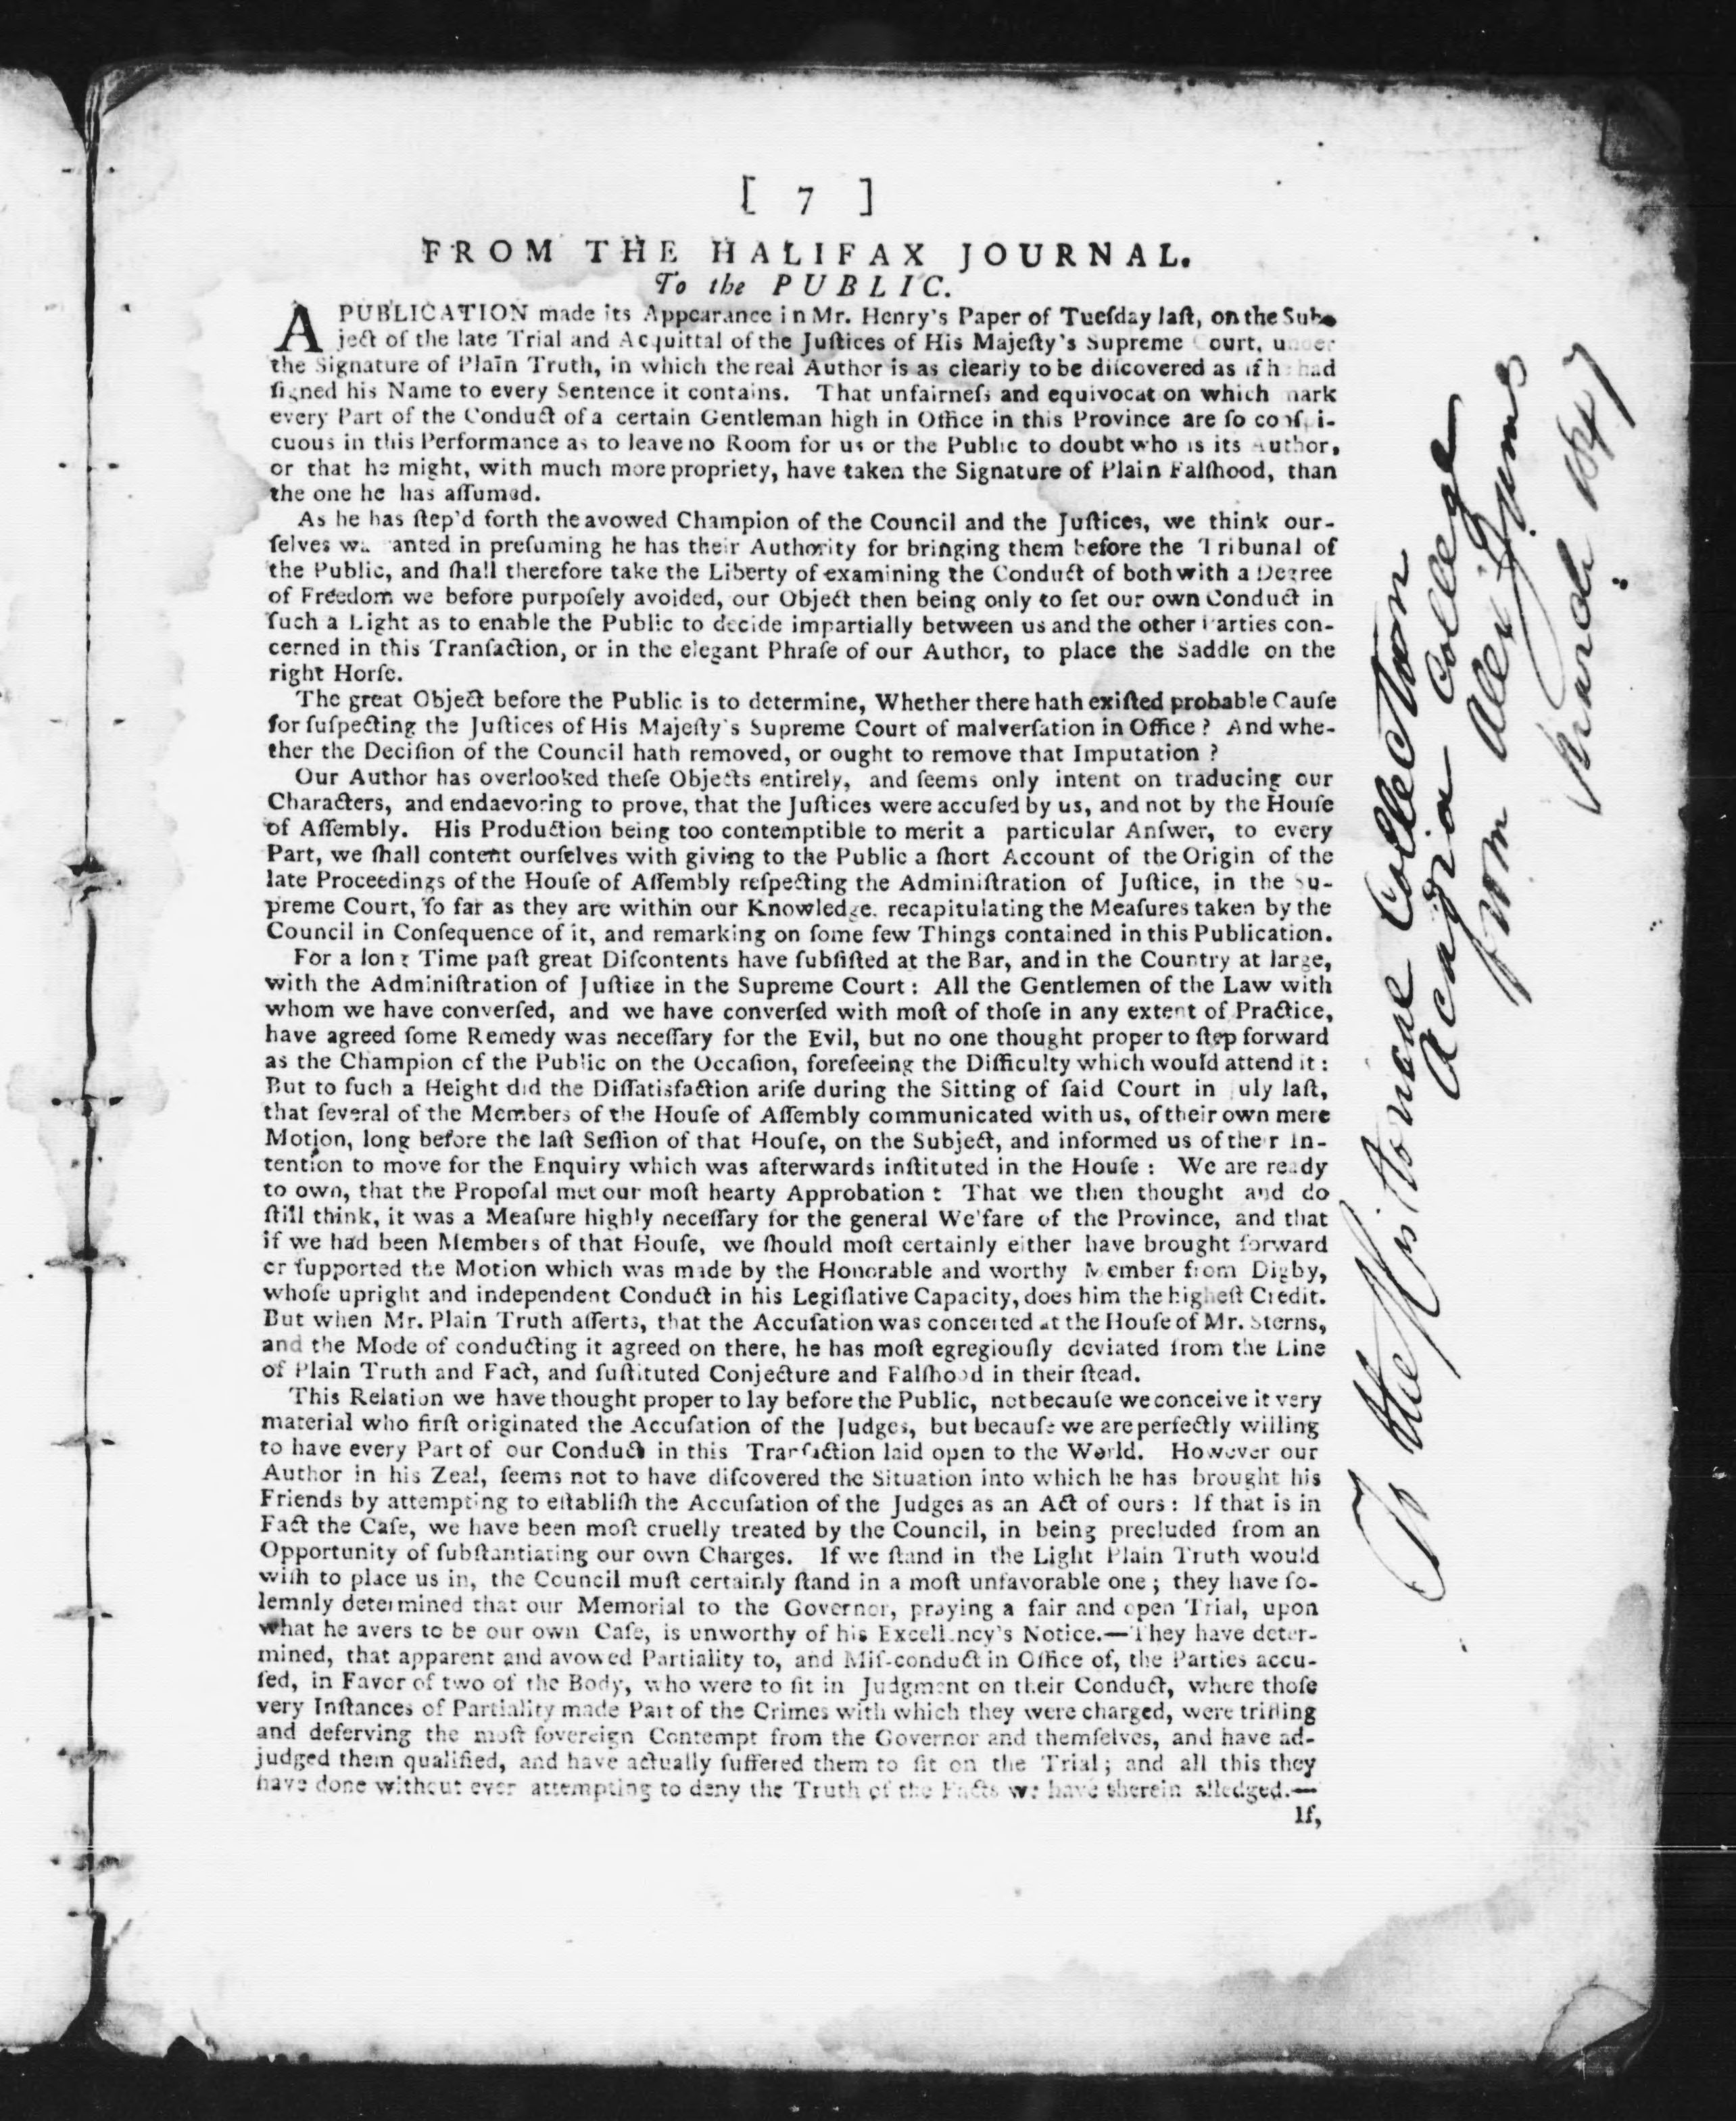 [ 7 ]
FROM THE HALIFAX JOURNAL.
To the PUBLIC.
A PUBLICATION made its Appearance in Mr. Henry's Paper of Tueſday laſt, on the Sub-
ject of the late Trial and Acquittal of the Juſtices of His Majeſty's Supreme Court, under
the Signature of Plain Truth, in which the real Author is as clearly to be diſcovered as if he had
ſigned his Name to every Sentence it contains. That unfairneſs and equivocation which mark
every Part of the Conduct of a certain Gentleman high in Office in this Province are ſo conſpi-
cuous in this Performance as to leave no Room for us or the Public to doubt who is its Author,
or that he might, with much more propriety, have taken the Signature of Plain Falſhood, than
the one he has aſſumed.
As he has ſtep'd forth the avowed Champion of the Council and the Juſtices, we think our-
ſelves warranted in preſuming he has their Authority for bringing them before the Tribunal of
the Public, and ſhall therefore take the Liberty of examining the Conduct of both with a Degree
of Freedom we before purpoſely avoided, our Object then being only to ſet our own Conduct in
ſuch a Light as to enable the Public to decide impartially between us and the other Parties con-
cerned in this Tranſaction, or in the elegant Phraſe of our Author, to place the Saddle on the
right Horſe.
The great Object before the Public is to determine, Whether there hath exiſted probable Cauſe
for ſuſpecting the Juſtices of His Majeſty's Supreme Court of malverſation in Office? And whe-
ther the Deciſion of the Council hath removed, or ought to remove that Imputation ?
Our Author has overlooked theſe Objects entirely, and ſeems only intent on traducing our
Characters, and endaevoring to prove, that the Juſtices were accuſed by us, and not by the Houſe
of Aſſembly. His Production being too contemptible to merit a particular Anſwer, to every
Part, we ſhall content ourſelves with giving to the Public a ſhort Account of the Origin of the
late Proceedings of the Houſe of Aſſembly reſpecting the Adminiſtration of Juſtice, in the Su-
preme Court, ſo far as they are within our Knowledge, recapitulating the Meaſures taken by the
Council in Conſequence of it, and remarking on ſome few Things contained in this Publication.
For a long Time paſt great Diſcontents have ſubſiſted at the Bar, and in the Country at large,
with the Adminiſtration of Juſtice in the Supreme Court: All the Gentlemen of the Law with
whom we have converſed, and we have converſed with moſt of thoſe in any extent of Practice,
have agreed ſome Remedy was neceſſary for the Evil, but no one thought proper to ſtep forward
as the Champion of the Public on the Occaſion, foreſeeing the Difficulty which would attend it:
But to ſuch a Height did the Diſſatisfaction ariſe during the Sitting of ſaid Court in July laſt,
that ſeveral of the Members of the Houſe of Aſſembly communicated with us, of their own mere
Motion, long before the laſt Seſſion of that Houſe, on the Subject, and informed us of their In-
tention to move for the Enquiry which was afterwards inſtituted in the Houſe: We are ready
to own, that the Propoſal met our moſt hearty Approbation: That we then thought and do
ſtill think, it was a Meaſure highly neceſſary for the general Welfare of the Province, and that
if we had been Members of that Houſe, we ſhould moſt certainly either have brought forward
or ſupported the Motion which was made by the Honorable and worthy Member from Digby,
whoſe upright and independent Conduct in his Legiſlative Capacity, does him the higheſt Credit.
But when Mr. Plain Truth aſſerts, that the Accuſation was concerted at the Houſe of Mr. Sterns,
and the Mode of conducting it agreed on there, he has moſt egregiouſly deviated from the Line
of Plain Truth and Fact, and ſuſtituted Conjecture and Falſhood in their ſtead.
This Relation we have thought proper to lay before the Public, not becauſe we conceive it very
material who firſt originated the Accuſation of the Judges, but becauſe we are perfectly willing
to have every Part of our Conduct in this Tranſaction laid open to the World. However our
Author in his Zeal, ſeems not to have diſcovered the Situation into which he has brought his
Friends by attempting to eſtabliſh the Accuſation of the Judges as an Act of ours: If that is in
Fact the Caſe, we have been moſt cruelly treated by the Council, in being precluded from an
Opportunity of ſubſtantiating our own Charges. If we ſtand in the Light Plain Truth would
wiſh to place us in, the Council muſt certainly ſtand in a moſt unfavorable one; they have ſo-
lemnly determined that our Memorial to the Governor, praying a fair and open Trial, upon
what he avers to be our own Caſe, is unworthy of his Excellency's Notice.—They have deter-
mined, that apparent and avowed Partiality to, and Miſ-conduct in Office of, the Parties accu-
ſed, in Favor of two of the Body, who were to ſit in Judgment on their Conduct, where thoſe
very Inſtances of Partiality made Part of the Crimes with which they were charged, were trifling
and deſerving the moſt ſovereign Contempt from the Governor and themſelves, and have ad-
judged them qualified, and have actually ſuffered them to ſit on the Trial; and all this they
have done without ever attempting to deny the Truth of the Facts we have therein alledged.—
If,
To the Historical Collection
Acadia College
from Alex
March 1847